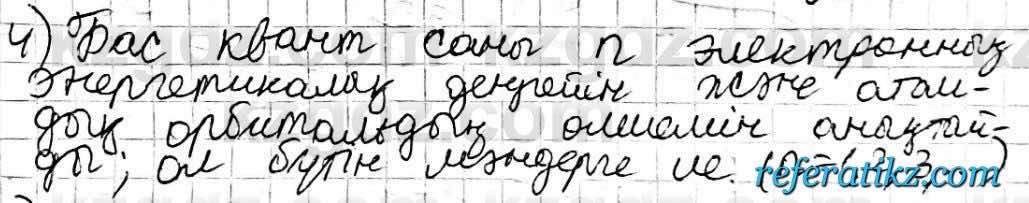 4) Бас квант саны n электронның
энергетикалық деңгейін және атом-
дық орбитальдың өлшемін анықтай-
ды; ол бүтін мәндерге ие. (n=1,2,3, )
referatikz.com